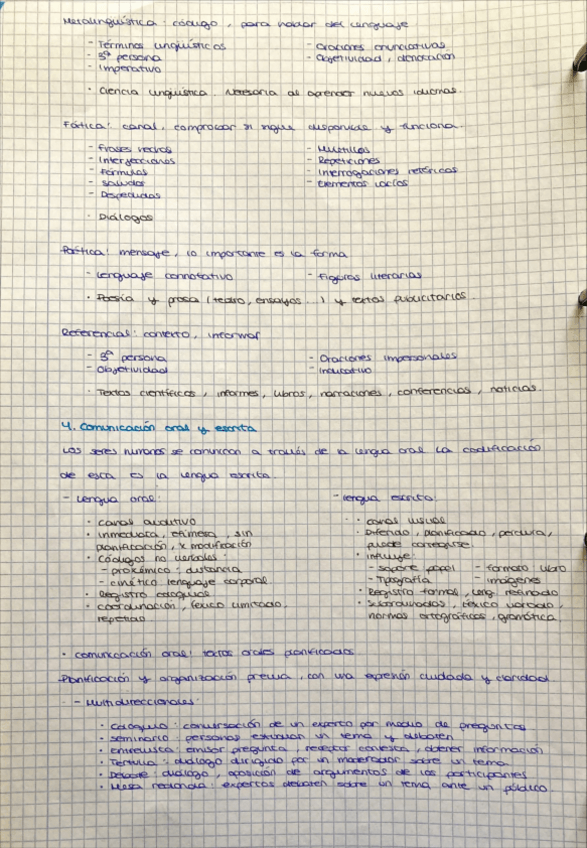 Metalingüística: código, para hablar del lenguaje
- Términos lingüísticos
- 3ª persona
- Imperativo
- Oraciones enunciativas
- Objetividad, denotación
· Ciencia lingüística. Necesaria al aprender nuevos idiomas.
Fática: canal, comprobar si sigue disponible y funciona.
- Frases hechas
- Interjecciones
- Fórmulas
- Saludos
- Despedidas
- Muletillas
- Repeticiones
- Interrogaciones retóricas
- Elementos vacíos
· Diálogos
Poética: mensaje, lo importante es la forma
- Lenguaje connotativo
- Figuras literarias
· Poesía y prosa (teatro, ensayos...) y textos publicitarios.
Referencial: contexto, informar
- 3ª persona
- Objetividad
- Oraciones impersonales
- Indicativo
· Textos científicos, informes, libros, narraciones, conferencias, noticias
4. Comunicación oral y escrita
Los seres humanos se comunican a través de la lengua oral. La codificación
de esta es la lengua escrita.
- Lengua oral:
· canal auditivo
· inmediata, efímera, sin
planificación, x modificación
· Códigos no verbales:
- proxémico: distancia
- cinético lenguaje corporal.
· Registro coloquial
· coordinación, léxico limitado,
repetido
- Lengua escrita:
· canal visual
· Diferido, planificado, perdura,
puede corregirse.
· Influye:
- soporte papel
- Tipografía
- formato libro
- imágenes
· Registro formal, leng. refinado
· Subordinadas, léxico variado,
normas ortográficas, gramática.
· comunicación oral: textos orales planificados
Planificación y organización previa, con una expresión cuidada y claridad
- Multidireccionales:
· Coloquio: conversación de un experto por medio de preguntas
· seminario: personas estudian un tema y debaten
· entrevista: emisor pregunta, receptor contesta, obtener información
· Tertulia: diálogo dirigido por un moderador sobre un tema
· Debate: diálogo, oposición de argumentos de los participantes
· Mesa redonda: expertos debaten sobre un tema ante un público.